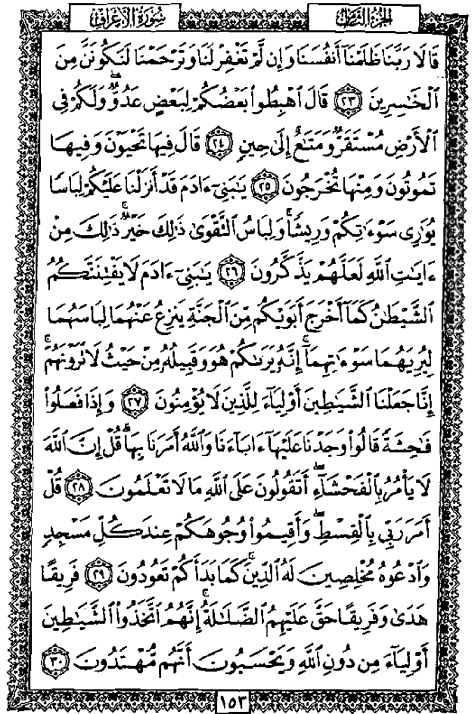 سُورَةُ الأَعْرَافِ
الجُزْءُ الثَّامِنُ
قَالَا رَبَّنَا ظَلَمْنَآ أَنفُسَنَا وَإِن لَّمْ تَغْفِرْ لَنَا وَتَرْحَمْنَا لَنَكُونَنَّ مِنَ
ٱلْخَـٰسِرِينَ ٢٣ قَالَ ٱهْبِطُوا۟ بَعْضُكُمْ لِبَعْضٍ عَدُوٌّ ۖ وَلَكُمْ فِى
ٱلْأَرْضِ مُسْتَقَرٌّ وَمَتَـٰعٌ إِلَىٰ حِينٍ ٢٤ قَالَ فِيهَا تَحْيَوْنَ وَفِيهَا
تَمُوتُونَ وَمِنْهَا تُخْرَجُونَ ٢٥ يَـٰبَنِىٓ ءَادَمَ قَدْ أَنزَلْنَا عَلَيْكُمْ لِبَاسًا
يُوَٰرِى سَوْءَٰتِكُمْ وَرِيشًا ۖ وَلِبَاسُ ٱلتَّقْوَىٰ ذَٰلِكَ خَيْرٌ ۚ ذَٰلِكَ مِنْ
ءَايَـٰتِ ٱللَّهِ لَعَلَّهُمْ يَذَّكَّرُونَ ٢٦ يَـٰبَنِىٓ ءَادَمَ لَا يَفْتِنَنَّكُمُ
ٱلشَّيْطَـٰنُ كَمَآ أَخْرَجَ أَبَوَيْكُم مِّنَ ٱلْجَنَّةِ يَنزِعُ عَنْهُمَا لِبَاسَهُمَا
لِيُرِيَهُمَا سَوْءَٰتِهِمَآ ۗ إِنَّهُۥ يَرَىٰكُمْ هُوَ وَقَبِيلُهُۥ مِنْ حَيْثُ لَا تَرَوْنَهُمْ ۗ
إِنَّا جَعَلْنَا ٱلشَّيَـٰطِينَ أَوْلِيَآءَ لِلَّذِينَ لَا يُؤْمِنُونَ ٢٧ وَإِذَا فَعَلُوا۟
فَـٰحِشَةً قَالُوا۟ وَجَدْنَا عَلَيْهَآ ءَابَآءَنَا وَٱللَّهُ أَمَرَنَا بِهَا ۗ قُلْ إِنَّ ٱللَّهَ
لَا يَأْمُرُ بِٱلْفَحْشَآءِ ۖ أَتَقُولُونَ عَلَى ٱللَّهِ مَا لَا تَعْلَمُونَ ٢٨ قُلْ
أَمَرَ رَبِّى بِٱلْقِسْطِ ۖ وَأَقِيمُوا۟ وُجُوهَكُمْ عِندَ كُلِّ مَسْجِدٍ
وَٱدْعُوهُ مُخْلِصِينَ لَهُ ٱلدِّينَ ۚ كَمَا بَدَأَكُمْ تَعُودُونَ ٢٩ فَرِيقًا
هَدَىٰ وَفَرِيقًا حَقَّ عَلَيْهِمُ ٱلضَّلَـٰلَةُ ۗ إِنَّهُمُ ٱتَّخَذُوا۟ ٱلشَّيَـٰطِينَ
أَوْلِيَآءَ مِن دُونِ ٱللَّهِ وَيَحْسَبُونَ أَنَّهُم مُّهْتَدُونَ ٣٠
١٥٣